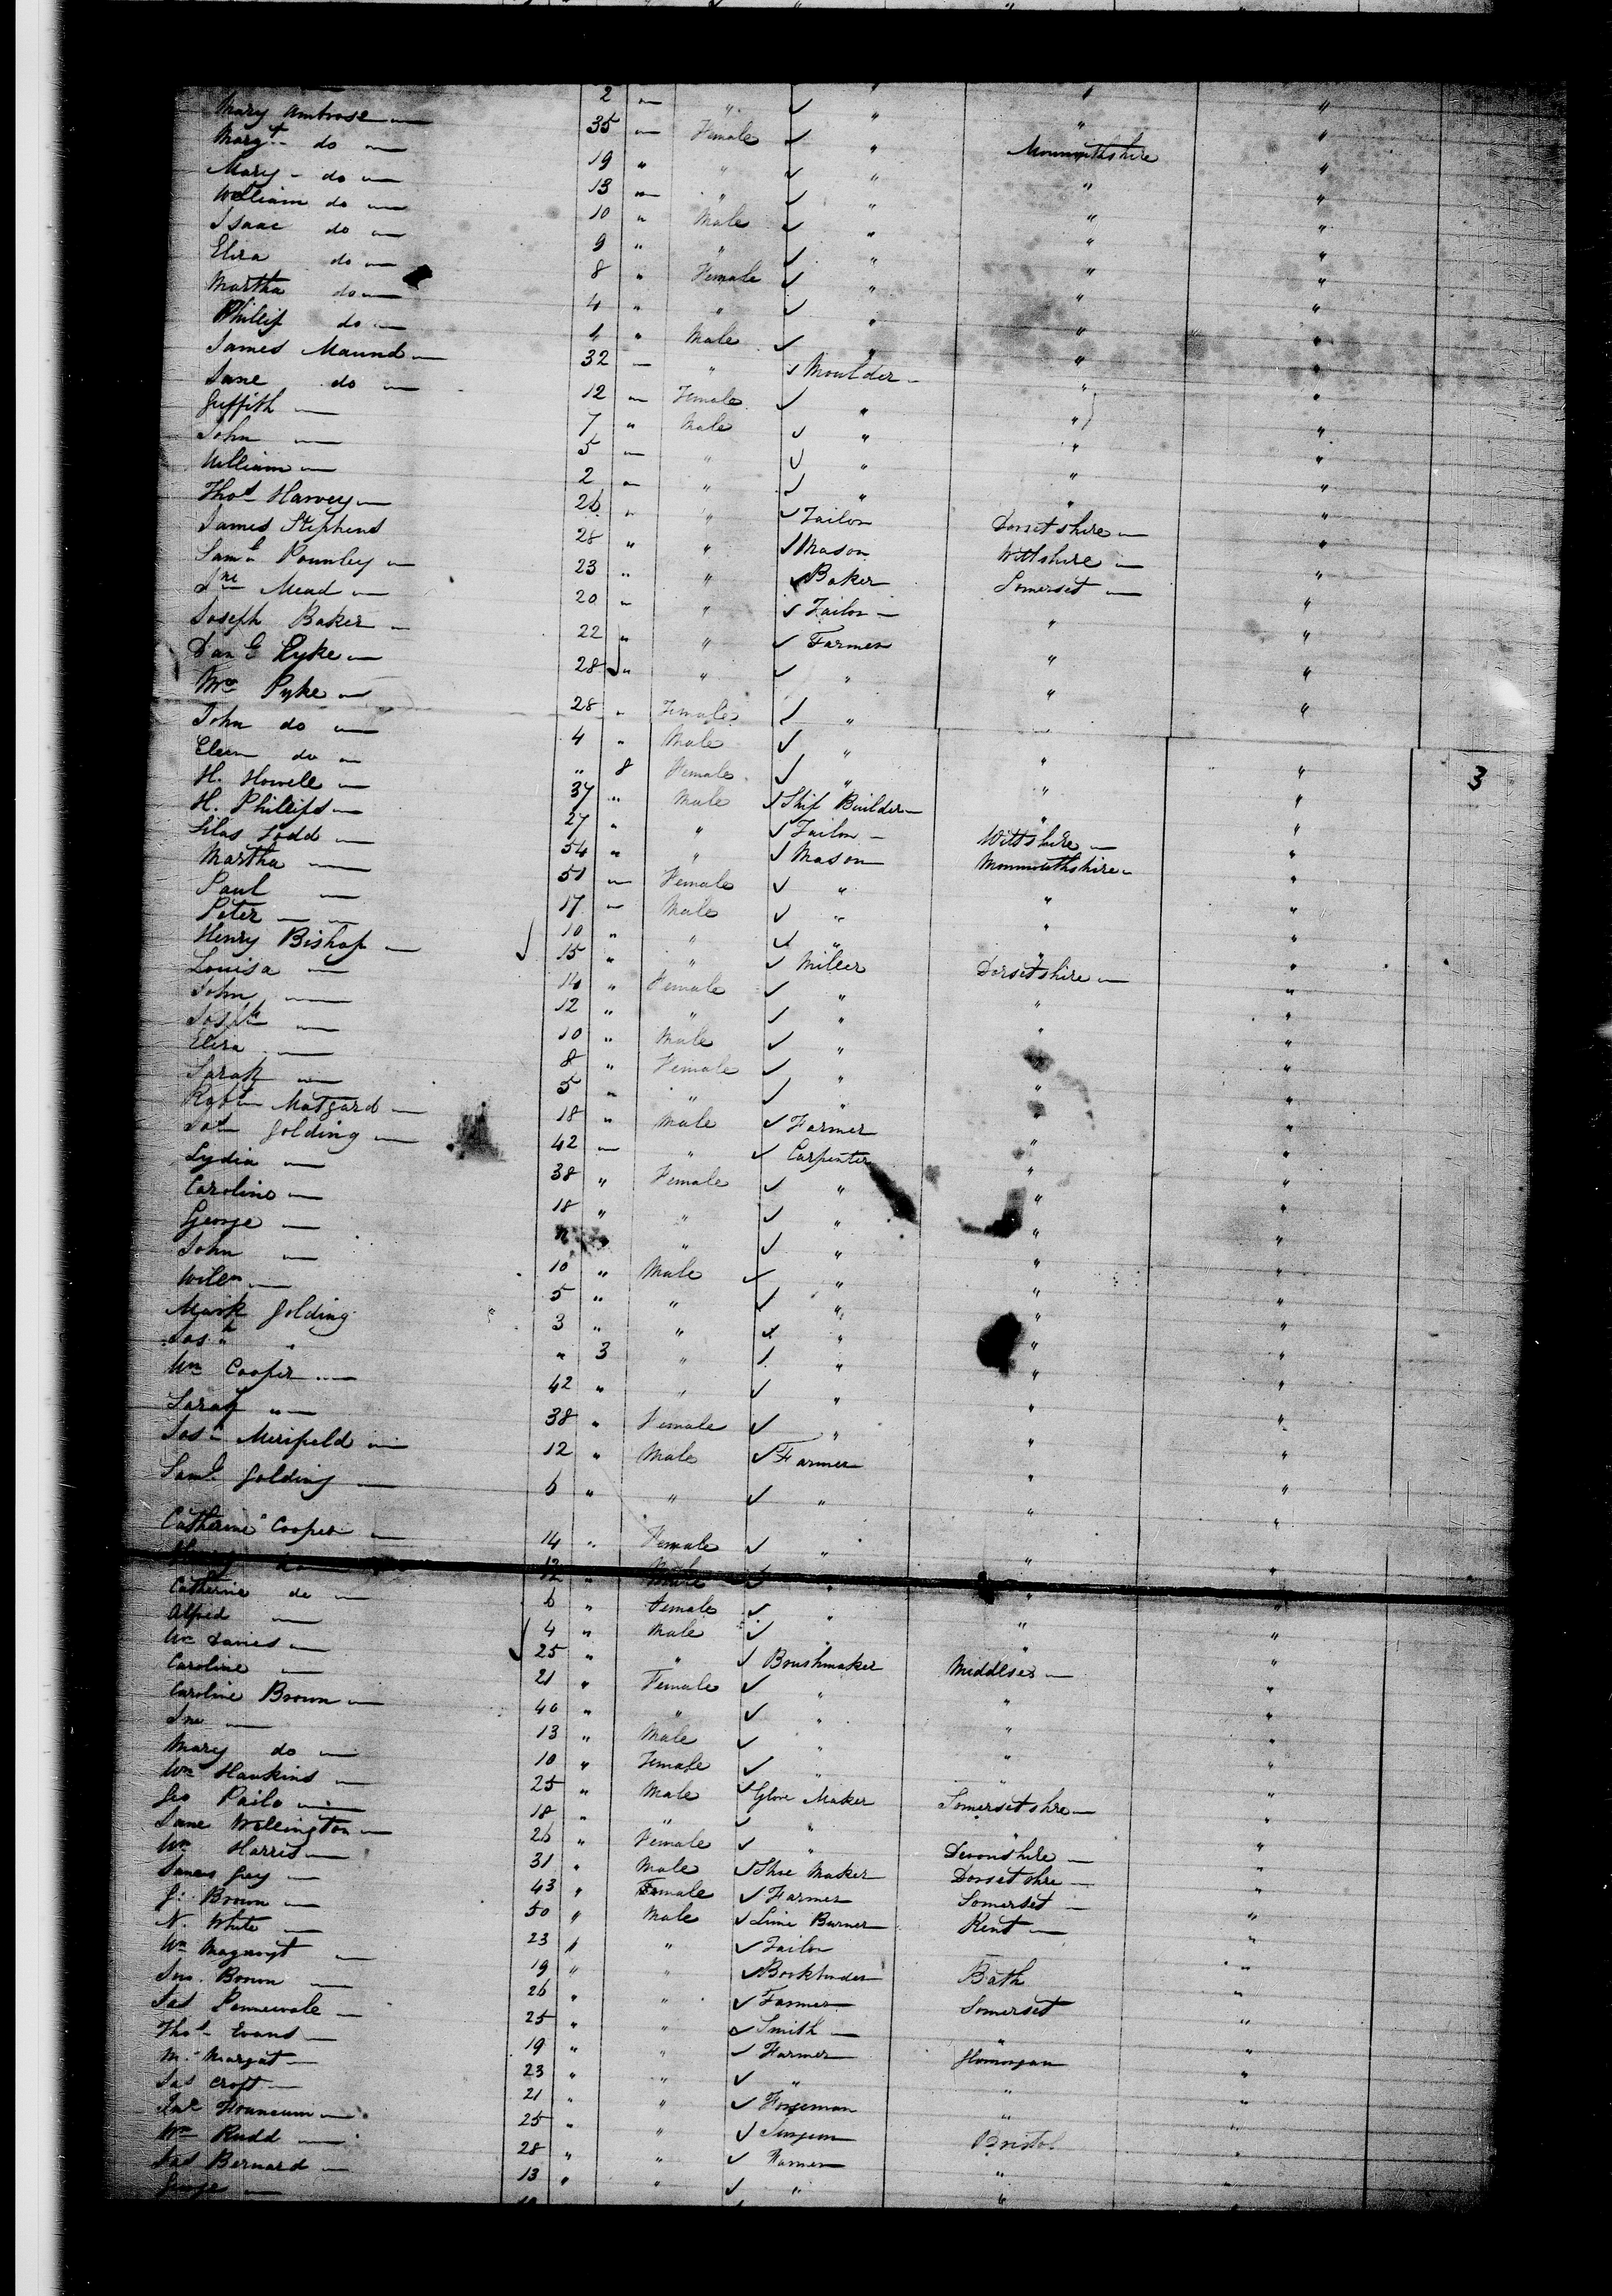 2 " " ✓ " " "
Mary Ambrose 35 " Female ✓ " " "
Margt do 19 " " ✓ " Monmouthshire "
Mary do 13 " " ✓ " " "
William do 10 " Male ✓ " " "
Isaac do 9 " " ✓ " " "
Eliza do 8 " Female ✓ " " "
Martha do 4 " " ✓ " " "
Phillip do 1 " Male ✓ " " "
James Maund 32 " " ✓ Moulder " "
Jane do 12 " Female ✓ " " "
Griffith 7 " Male ✓ " " "
John 5 " " ✓ " " "
William 2 " " ✓ " " "
Thos Harvey 26 " " ✓ Tailor Dorsetshire "
James Stephens 28 " " ✓ Mason Wiltshire "
Saml Pounley 23 " " ✓ Baker Somerset "
Jno Mead 20 " " ✓ Tailor " "
Joseph Baker 22 " " ✓ Farmer " "
Dan G Pyke 28 " " ✓ " " "
Mrs Pyke 28 " Female ✓ " " "
John do 4 " Male ✓ " " "
Ellen do " 8 Female ✓ " " " 3
H. Howell 37 " Male ✓ Ship Builder " "
H. Phillips 27 " " ✓ Tailor Wiltshire "
Silas Todd 54 " " ✓ Mason Monmouthshire "
Martha 51 " Female ✓ " " "
Paul 17 " Male ✓ " " "
Peter 10 " " ✓ " " "
Henry Bishop ✓ 15 " " ✓ Miller Dorsetshire "
Louisa 14 " Female ✓ " " "
John 12 " " ✓ " " "
Joseph 10 " Male ✓ " " "
Eliza 8 " Female ✓ " " "
Sarah 5 " " ✓ " " "
Robt Matgard 18 " Male ✓ Farmer " "
Jos Golding 42 " " ✓ Carpenter " "
Lydia 38 " Female ✓ " " "
Caroline 18 " " ✓ " " "
George " ✓ " " "
John 10 " Male ✓ " " "
Willm 5 " " ✓ " " "
Mark Golding 3 " " ✓ " " "
Josh " " 3 " ✓ " " "
Wm Cooper 42 " " ✓ " " "
Sarah " 38 " Female ✓ " " "
Jos Merifield 12 " Male ✓ Farmer " "
Saml Golding 6 " " ✓ " " "
Catherine Cooper 14 " Female ✓ " " "
Henry do 12 " Male ✓ " " "
Catherine do 6 " Female ✓ " " "
Alfred 4 " Male ✓ " " "
Wm Davies ✓ 25 " " ✓ Brushmaker Middlesex "
Caroline 21 " Female ✓ " " "
Caroline Brown 40 " " ✓ " " "
Jno 13 " Male ✓ " " "
Mary do 10 " Female ✓ " " "
Wm Hawkins 25 " Male ✓ Glove Maker Somersetshre "
Geo Pailo 18 " " ✓ " " "
Jane Wellington 26 " Female ✓ " Devonshire "
Wm Harris 31 " Male ✓ Shoe Maker Dorsetshre "
James Guy 43 " Female ✓ Farmer Somerset "
G. Brown 50 " Male ✓ Lime Burner Kent "
N. White 23 " " ✓ Tailor "
Wm 19 " " ✓ Bookbinder Bath "
Jno. Brown 26 " " ✓ Farmer Somerset "
Jas 25 " " ✓ Smith " "
Thos Evans 19 " " ✓ Farmer Glamorgan "
M. Margat 23 " " ✓ " " "
Jas Croft 21 " " ✓ Forgeman " "
25 " " ✓ Surgeon Bristol "
Wm Rudd 28 " " ✓ Farmer " "
Jas Bernard 13 " " ✓ " " "
George